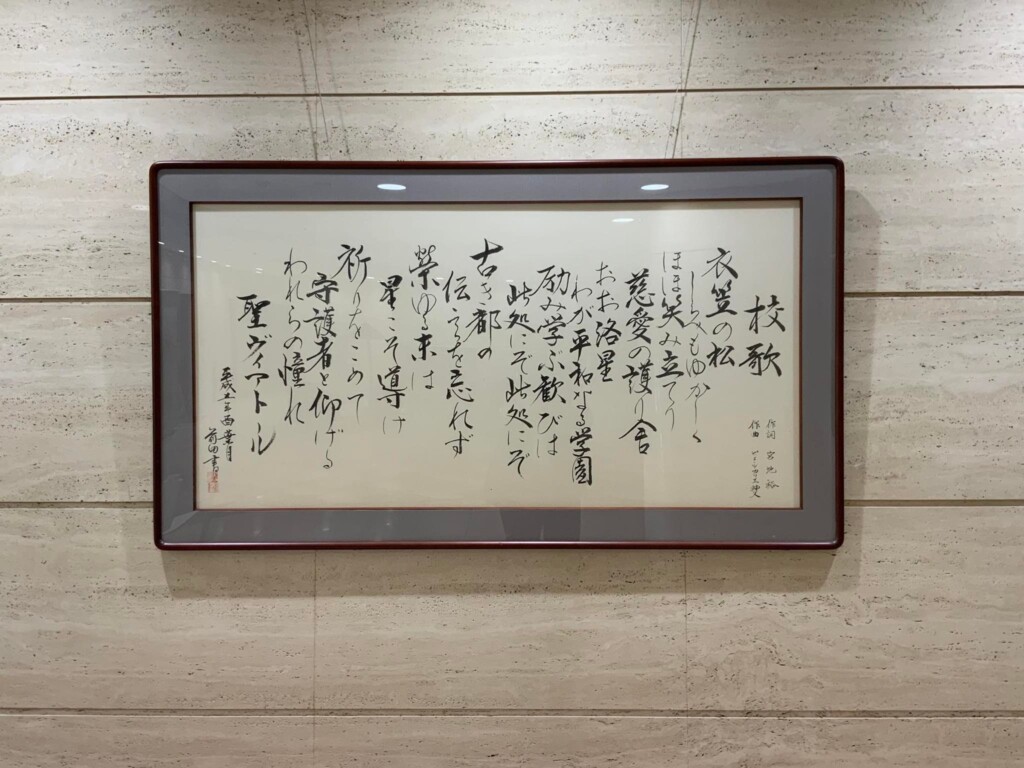 校歌
作詞 宮地 裕
作曲
衣笠の松
しるみもゆかしく
ほほ笑み立てり
慈愛の護り舎
おお洛星
わが平和なる学園
励み学ぶ歓びは
此処にぞ此処にぞ
古き都の
伝を忘れず
榮ゆる末は
星こそ導け
祈りをこめて
守護者と仰げる
われらの憧れ
聖ヴィアトール
平成五年酉葉月
前田書